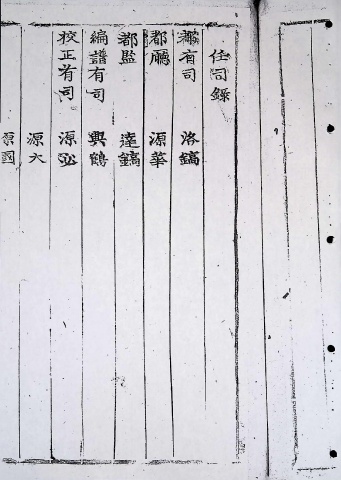 任司錄
有司 洛鎬
都廳 源華
都監 達鎬
編譜有司 興鶴
校正有司 源泌
源大
源國